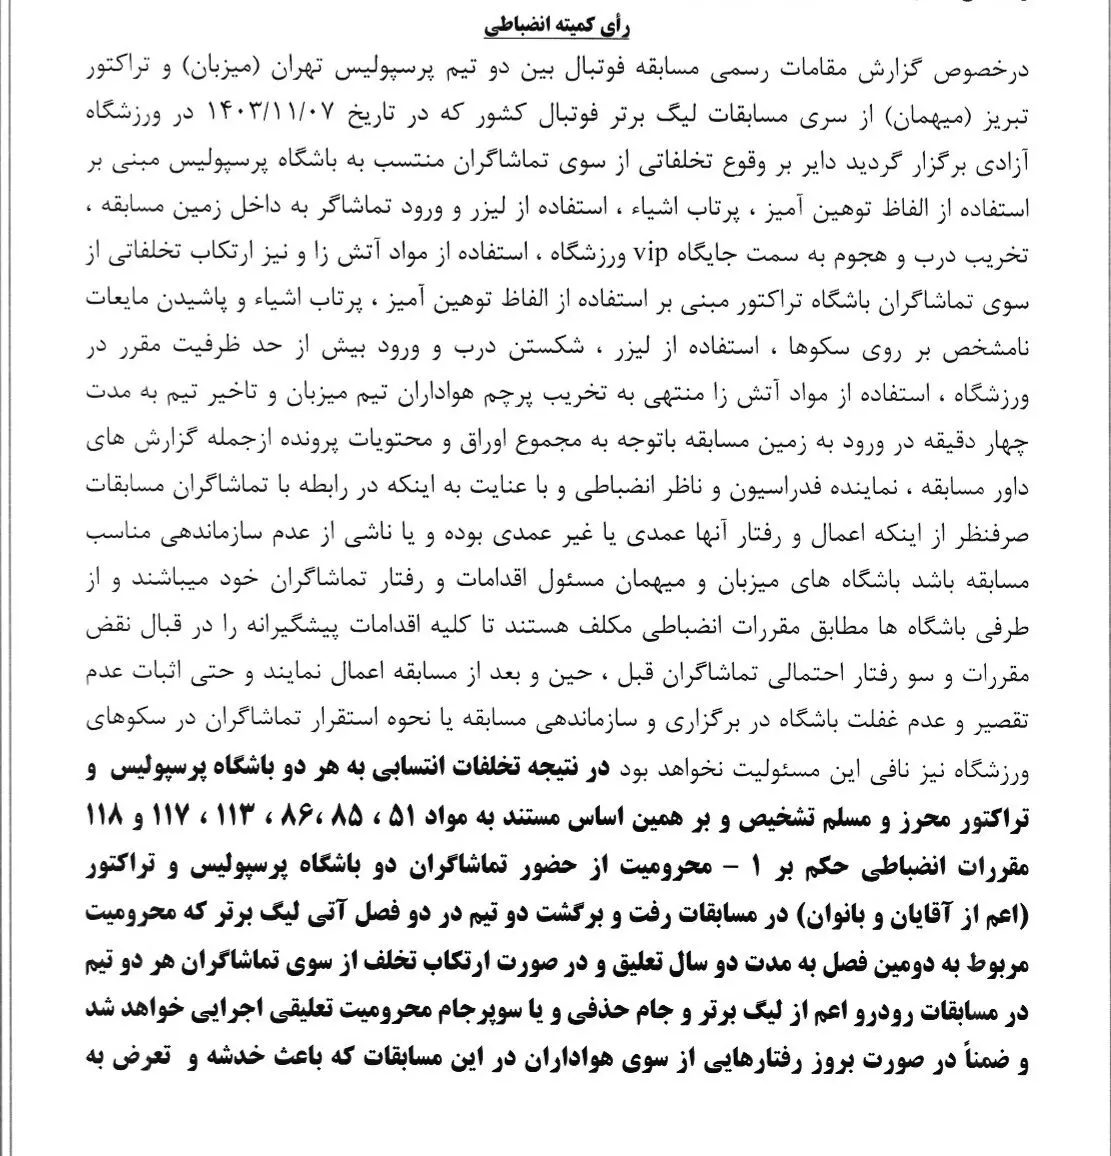 رأی کمیته انضباطی
درخصوص گزارش مقامات رسمی مسابقه فوتبال بین دو تیم پرسپولیس تهران (میزبان) و تراکتور
تبریز (میهمان) از سری مسابقات لیگ برتر فوتبال کشور که در تاریخ ۱۴۰۳/۱۱/۰۷ در ورزشگاه
آزادی برگزار گردید دایر بر وقوع تخلفاتی از سوی تماشاگران منتسب به باشگاه پرسپولیس مبنی بر
استفاده از الفاظ توهین آمیز ، پرتاب اشیاء ، استفاده از لیزر و ورود تماشاگر به داخل زمین مسابقه ،
تخریب درب و هجوم به سمت جایگاه vip ورزشگاه ، استفاده از مواد آتش زا و نیز ارتکاب تخلفاتی از
سوی تماشاگران باشگاه تراکتور مبنی بر استفاده از الفاظ توهین آمیز ، پرتاب اشیاء و پاشیدن مایعات
نامشخص بر روی سکوها ، استفاده از لیزر ، شکستن درب و ورود بیش از حد ظرفیت مقرر در
ورزشگاه ، استفاده از مواد آتش زا منتهی به تخریب پرچم هواداران تیم میزبان و تاخیر تیم به مدت
چهار دقیقه در ورود به زمین مسابقه باتوجه به مجموع اوراق و محتویات پرونده ازجمله گزارش های
داور مسابقه ، نماینده فدراسیون و ناظر انضباطی و با عنایت به اینکه در رابطه با تماشاگران مسابقات
صرفنظر از اینکه اعمال و رفتار آنها عمدی یا غیر عمدی بوده و یا ناشی از عدم سازماندهی مناسب
مسابقه باشد باشگاه های میزبان و میهمان مسئول اقدامات و رفتار تماشاگران خود میباشند و از
طرفی باشگاه ها مطابق مقررات انضباطی مکلف هستند تا کلیه اقدامات پیشگیرانه را در قبال نقض
مقررات و سو رفتار احتمالی تماشاگران قبل ، حین و بعد از مسابقه اعمال نمایند و حتی اثبات عدم
تقصیر و عدم غفلت باشگاه در برگزاری و سازماندهی مسابقه یا نحوه استقرار تماشاگران در سکوهای
ورزشگاه نیز نافی این مسئولیت نخواهد بود در نتیجه تخلفات انتسابی به هر دو باشگاه پرسپولیس و
تراکتور محرز و مسلم تشخیص و بر همین اساس مستند به مواد ۵۱ ، ۸۵ ،۸۶ ، ۱۱۳ ، ۱۱۷ و ۱۱۸
مقررات انضباطی حکم بر ۱ - محرومیت از حضور تماشاگران دو باشگاه پرسپولیس و تراکتور
(اعم از آقایان و بانوان) در مسابقات رفت و برگشت دو تیم در دو فصل آتی لیگ برتر که محرومیت
مربوط به دومین فصل به مدت دو سال تعلیق و در صورت ارتکاب تخلف از سوی تماشاگران هر دو تیم
در مسابقات رودرو اعم از لیگ برتر و جام حذفی و یا سوپرجام محرومیت تعلیقی اجرایی خواهد شد
و ضمناً در صورت بروز رفتارهایی از سوی هواداران در این مسابقات که باعث خدشه و تعرض به